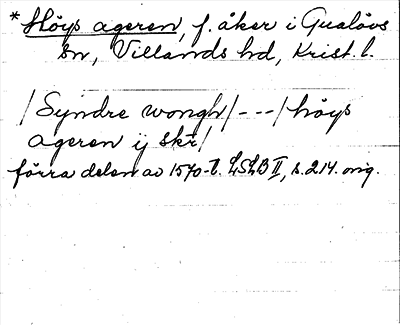 *Höys ageren, f. åker i Gualövs
sn, Villands hd, Krist. l.
/Syndre wongh/---/höys
ageren ij skr/
förra delen av 1570-t. LSLB II, s. 214. orig.